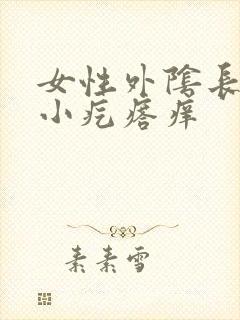 女性外陰長
小疙瘩痒
素素雪